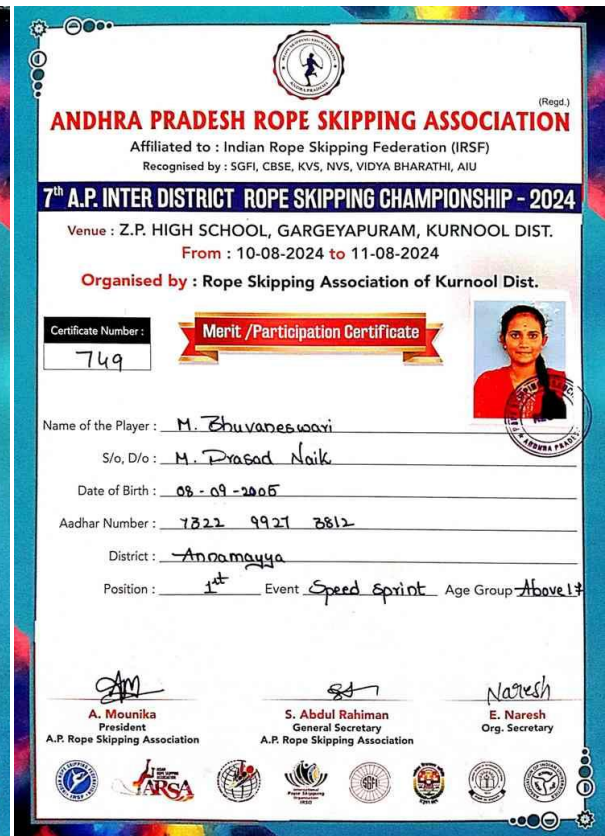 (Regd.)
ANDHRA PRADESH ROPE SKIPPING ASSOCIATION
Affiliated to : Indian Rope Skipping Federation (IRSF)
Recognised by : SGFI, CBSE, KVS, NVS, VIDYA BHARATHI, AIU
7th A.P. INTER DISTRICT ROPE SKIPPING CHAMPIONSHIP - 2024
Venue : Z.P. HIGH SCHOOL, GARGEYAPURAM, KURNOOL DIST.
From : 10-08-2024 to 11-08-2024
Organised by : Rope Skipping Association of Kurnool Dist.
Certificate Number :
749
Merit /Participation Certificate
Name of the Player : M. Bhuvaneswari
S/o, D/o : M. Prasad Naik
Date of Birth : 08 - 09 - 2005
Aadhar Number : 7322 9927 3812
District : Annamayya
Position : 1st Event Speed Sprint Age Group Above 17
A. Mounika
President
A.P. Rope Skipping Association
S. Abdul Rahiman
General Secretary
A.P. Rope Skipping Association
Naresh
E. Naresh
Org. Secretary
ARSA
IRSO
SGFI